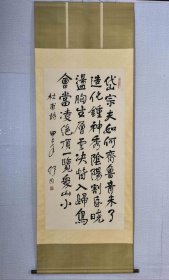 岱宗夫如何齊魯青未了
造化鍾神秀陰陽割昏曉
盪胸生層雲决眥入歸鳥
會當凌絕頂一覽衆山小
杜甫詩